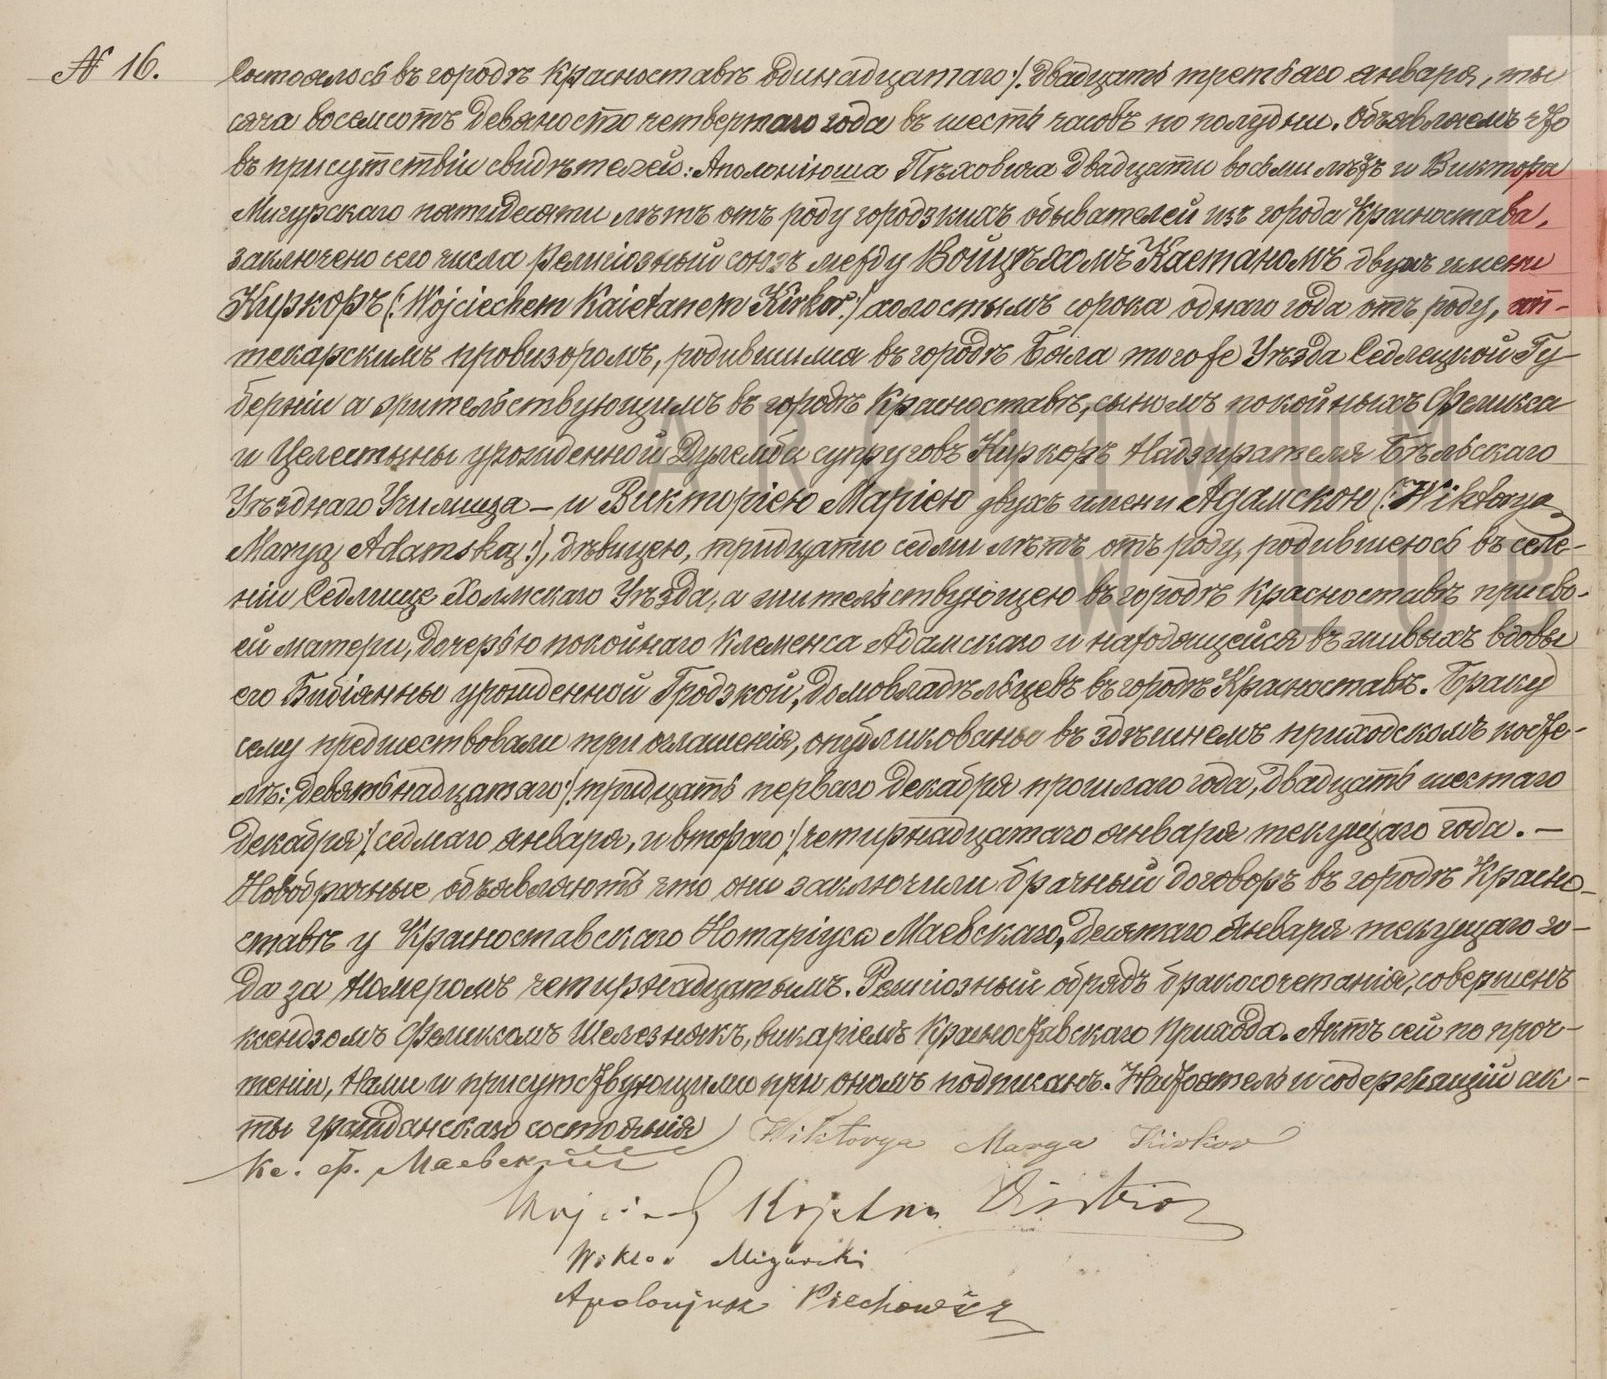 № 16.
Состоялось въ городѣ Красноставѣ одинадцатаго /: двадцать третьяго января, ты
сяча восемсотъ девяносто четвертаго года въ шесть часовъ по полудни. Объявляемъ что
въ присутствіи свидѣтелей: Аполоніюша Пѣховича двадцати восьми лѣтъ и Виктора
Мигурскаго пятидесяти лѣтъ отъ роду городскихъ обывателей изъ города Красностава,
заключено сего числа религіозный союзъ между Войцѣхомъ Каетаномъ двухъ имени
Киркоръ (: Wojciechem Kaietanem Kirkor :) холостымъ сорока однаго года отъ роду, ап-
текарскимъ провизоромъ, родившимся въ городѣ Бяла тогоже Уѣзда Седлецкой Гу-
берніи а жительствующимъ въ городѣ Красноставѣ, сыномъ покойныхъ Феликса
и Целестыны урожденной супруговъ Киркоръ Надзирателя Бѣльскаго
Уѣзднаго Училища — и Викторіею Маріею двухъ имени Адамскою (: Wiktoryą
Maryą Adamską :), дѣвицею, тридцати седми лѣтъ отъ роду, родившеюся въ селе-
ніи Седлище Холмскаго Уѣзда, а жительствующею въ городѣ Красноставѣ при сво-
ей матери, дочерью покойнаго Клеменса Адамскаго и находящейся въ живыхъ вдовы
его Бибіянны урожденной Гродзкой, домовладѣльцевъ въ городѣ Красноставѣ. Браку
сему предшествовали три оглашенія, опубликованые въ здѣшнемъ приходскомъ косте-
лѣ: девятьнадцатаго /: тридцать перваго Декабря прошлаго года, двадцать шестаго
Декабря /: седмаго января, и втораго /: четирнадцатаго января текущаго года. —
Новобрачные объявляютъ что они заключили брачный договоръ въ городѣ Красно-
ставѣ у Красноставскаго Нотаріуса Маевскаго, десятаго Января текущаго го-
да за Номеромъ четирнадцатымъ. Религіозный обрядъ бракосочетанія, совершенъ
ксендзомъ Феликсомъ Шелезнякъ, викаріемъ Красноставскаго Прихода. Актъ сей по проч-
теніи, Нами и присутствующими при ономъ подписанъ. Настоятель и содержащій ак-
ты гражданскаго состоянія Wiktorya Marya Kirkor
Кс. Ф. Маевскій
Wojciech Kajetan Kirkor
Wiktor Migurski
Apolonjusz Piechowicz
ARCHIWUM
W LUB